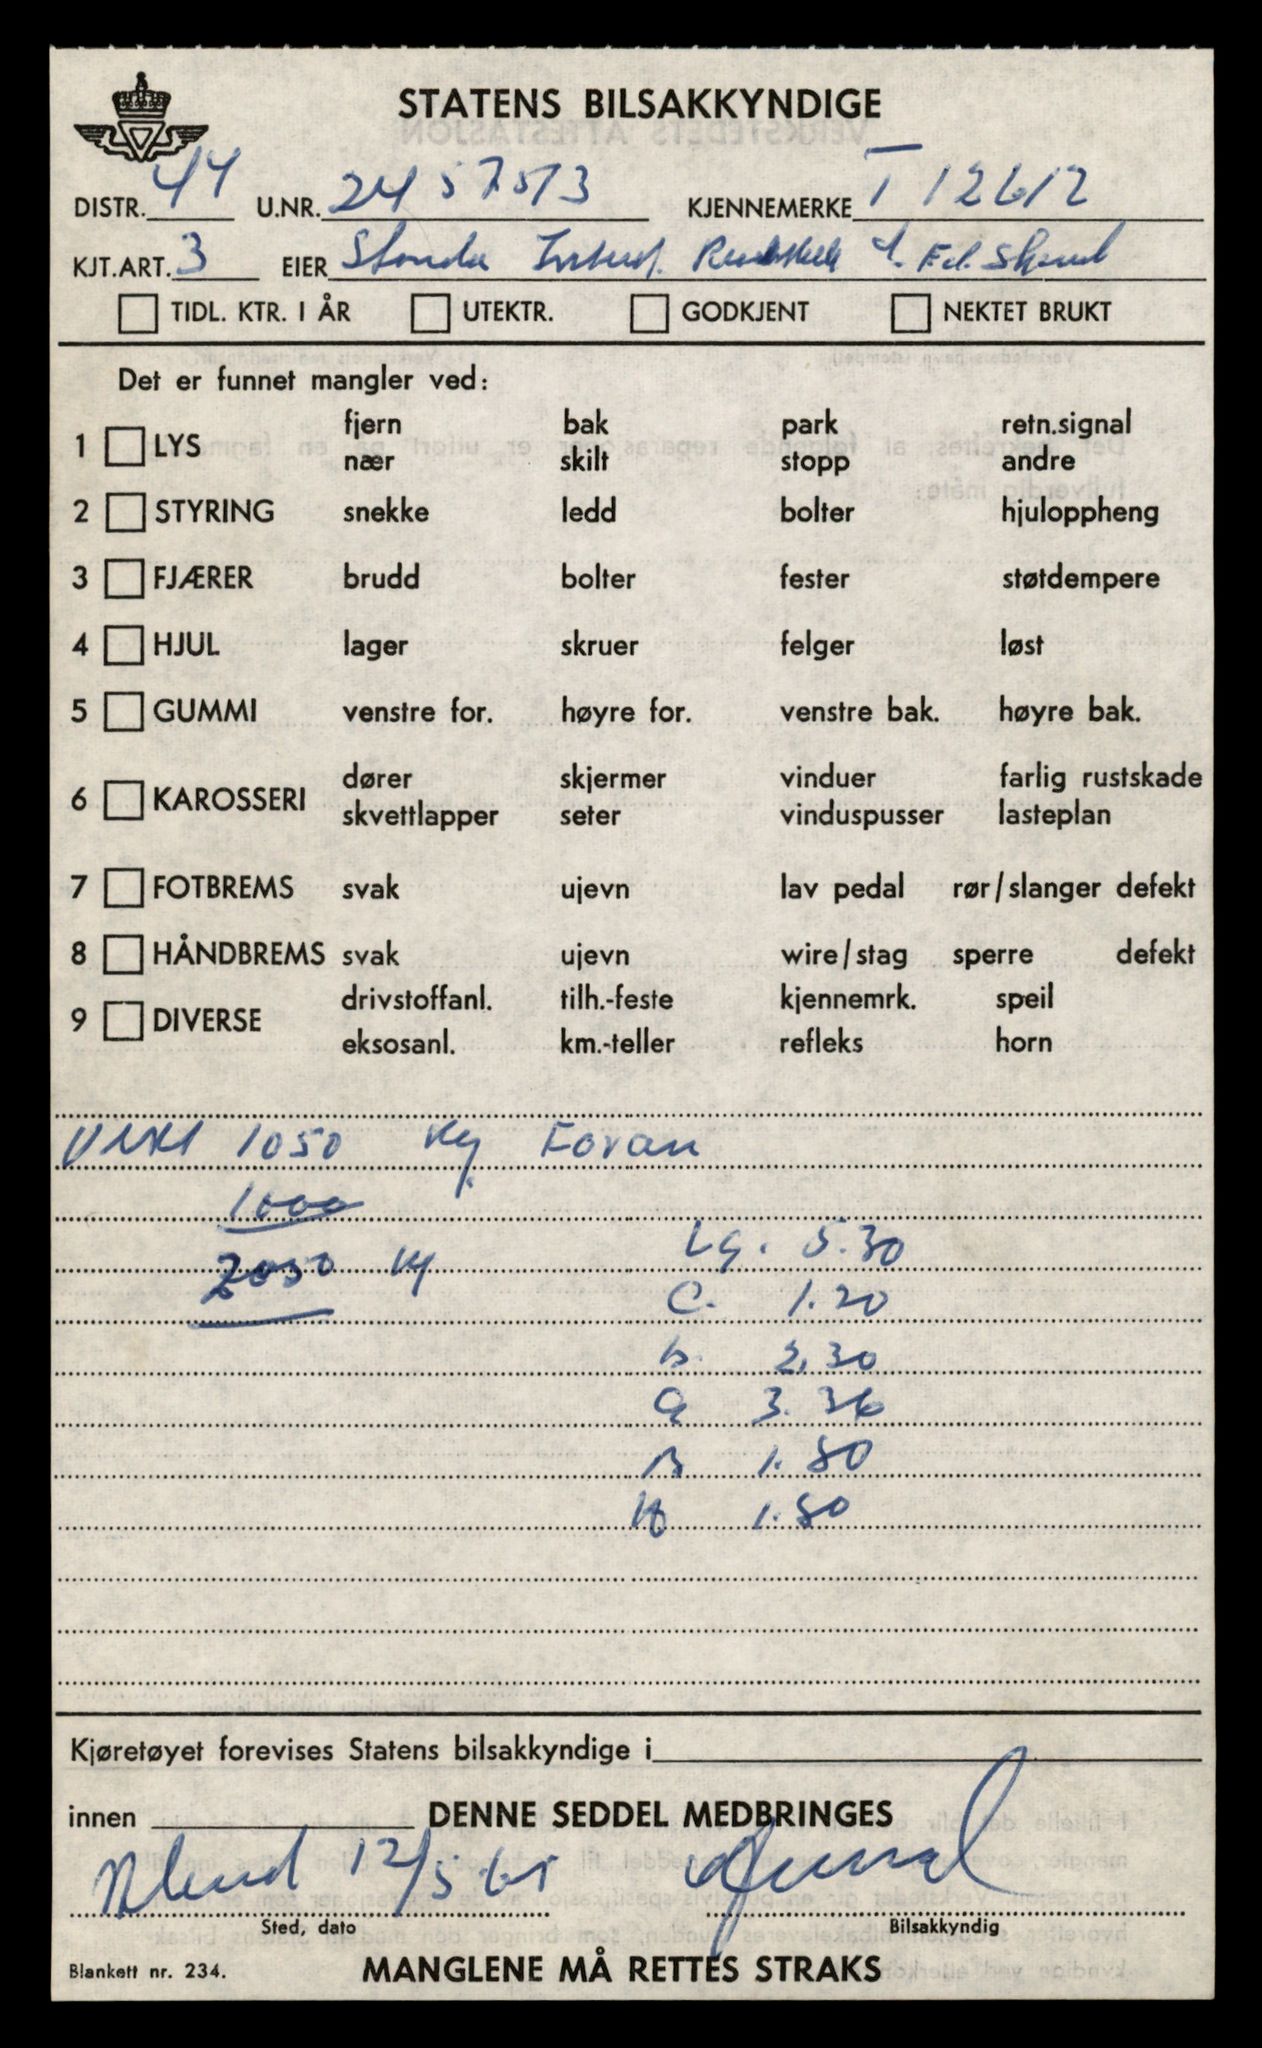 STATENS BILSAKKYNDIGE
DISTR. 44 U.NR. 2457513 KJENNEMERKE T 12612
KJT.ART. 3 EIER
TIDL. KTR. I ÅR UTEKTR. GODKJENT NEKTET BRUKT
Det er funnet mangler ved:
fjern bak park retn.signal
1 LYS
nær skilt stopp andre
2 STYRING snekke ledd bolter hjuloppheng
3 FJÆRER brudd bolter fester støtdempere
4 HJUL lager skruer felger løst
5 GUMMI venstre for. høyre for. venstre bak. høyre bak.
dører skjermer vinduer farlig rustskade
6 KAROSSERI
skvettlapper seter vinduspusser lasteplan
7 FOTBREMS svak ujevn lav pedal rør/slanger defekt
8 HÅNDBREMS svak ujevn wire/stag sperre defekt
drivstoffanl. tilh.-feste kjennemrk. speil
9 DIVERSE
eksosanl. km.-teller refleks horn
Vekt 1050 kg Foran
1000
2050 kg Lg. 5.30
C. 1.20
b. 2.30
a 3.36
B 1.80
H 1.80
Kjøretøyet forevises Statens bilsakkyndige i
innen DENNE SEDDEL MEDBRINGES
12/5-65
Sted, dato Bilsakkyndig
Blankett nr. 234. MANGLENE MÅ RETTES STRAKS